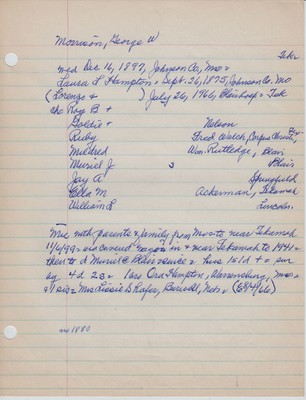 Morrison, George W
Tek
md Dec 16, 1897, Johnson Co, Mo =
Laura L Hampton = Sept. 26, 1875, Johnson Co. Mo
(Lorenzo + ) July 26, 1966, Blair hosp = Tek
chr Roy B +
Goldie + Nelson
Ruby Fred Welch, Corpus Christi,
Mildred Wm. Rutledge, Blair
Muriel J Blair
Jay A Springfield
Ella M Ackerman, Tekamah
William L Lincoln.
with parents & family from Mo to near Tekamah
11/6/99 = on covered wagon in & near Tekamah to 1941 =
then to d Muriel @ Blair since = hus 15 d + = sur
4 d 2 s = 1 bro Ord Hampton, Warrensburg, Mo =
1 sis = Mrs Lissie B Rafer, Nebr = (
mo 1880